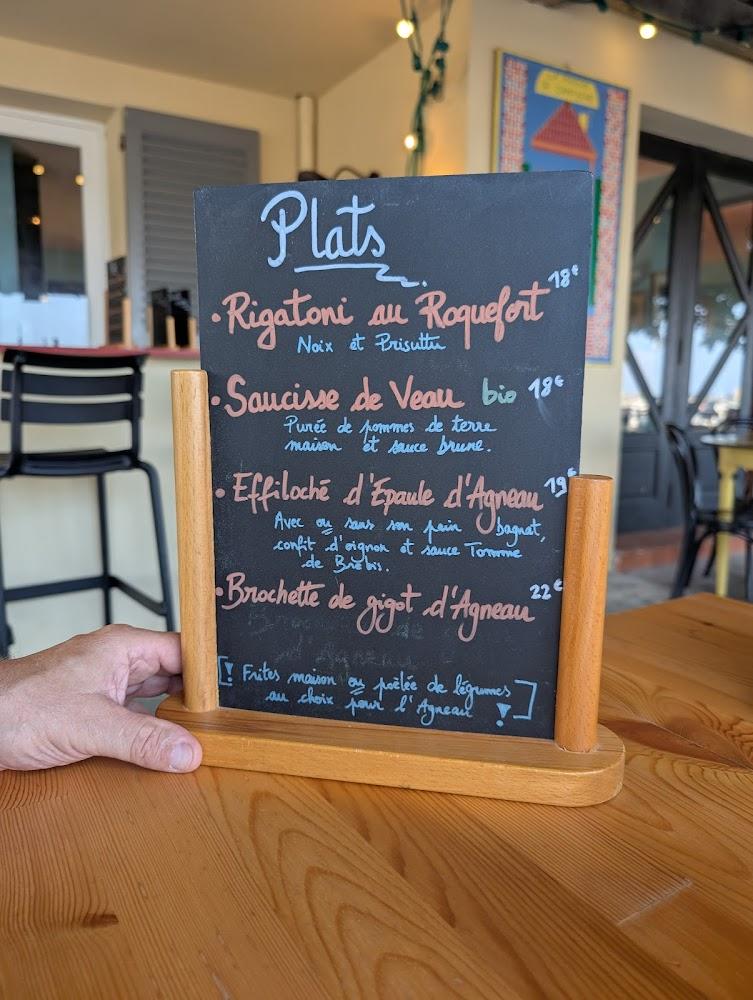 Plats
• Rigatoni au Roquefort 18€
Noix et Prisuttu
• Saucisse de Veau bio 18€
Purée de pommes de terre
maison et sauce brune.
• Effiloché d'Épaule d'Agneau 19€
Avec ou sans son pain bagnat,
confit d'oignon et sauce Tomme
de Brebis.
• Brochette de gigot d'Agneau 22€
d'Agneau
[! Frites maison ou poêlée de légumes
au choix pour l'Agneau !]